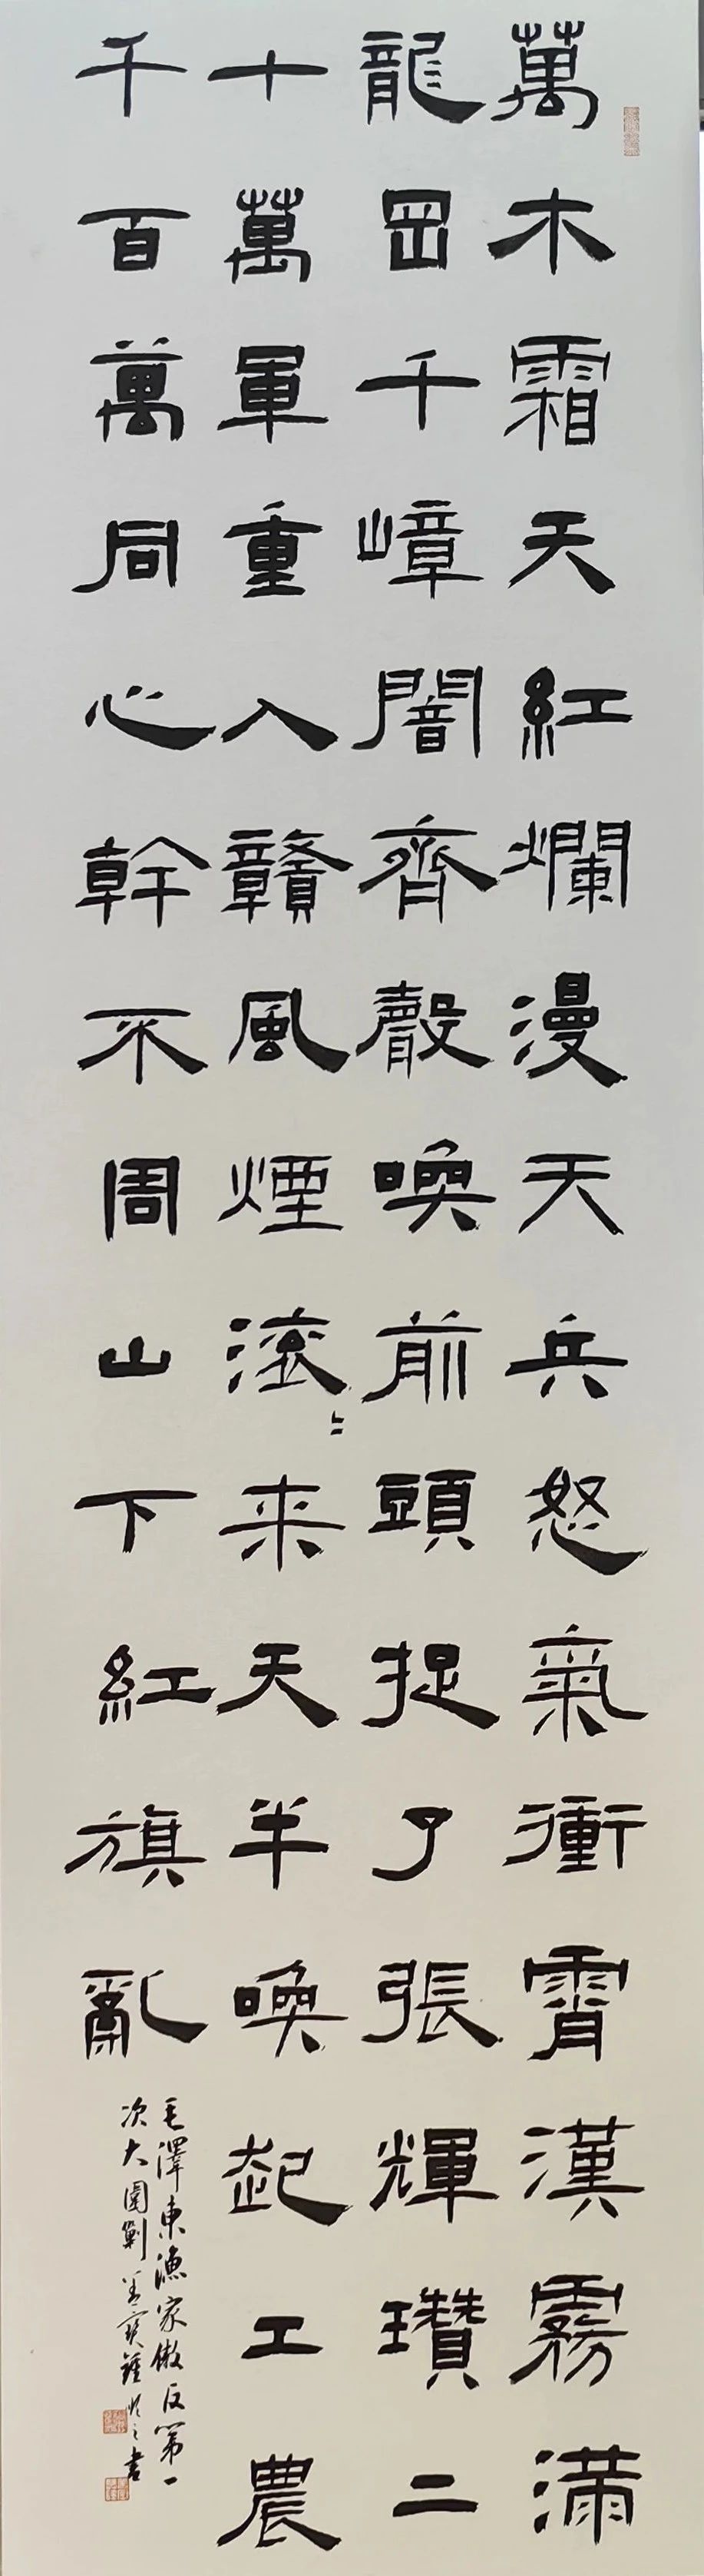 萬木霜天紅爛漫天兵怒氣衝霄漢霧滿
龍岡千嶂闇齊聲喚前頭捉了張輝瓚二
十萬軍重入贛風煙滾〻来天半喚起工農
千百萬同心幹不周山下紅旗亂
毛澤東漁家傲反第一
次大圍剿
書